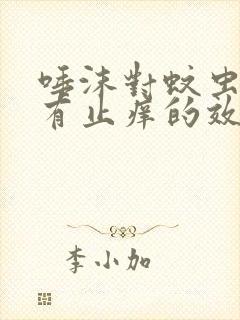 唾沫對蚊虫
有止痒的效
李小加